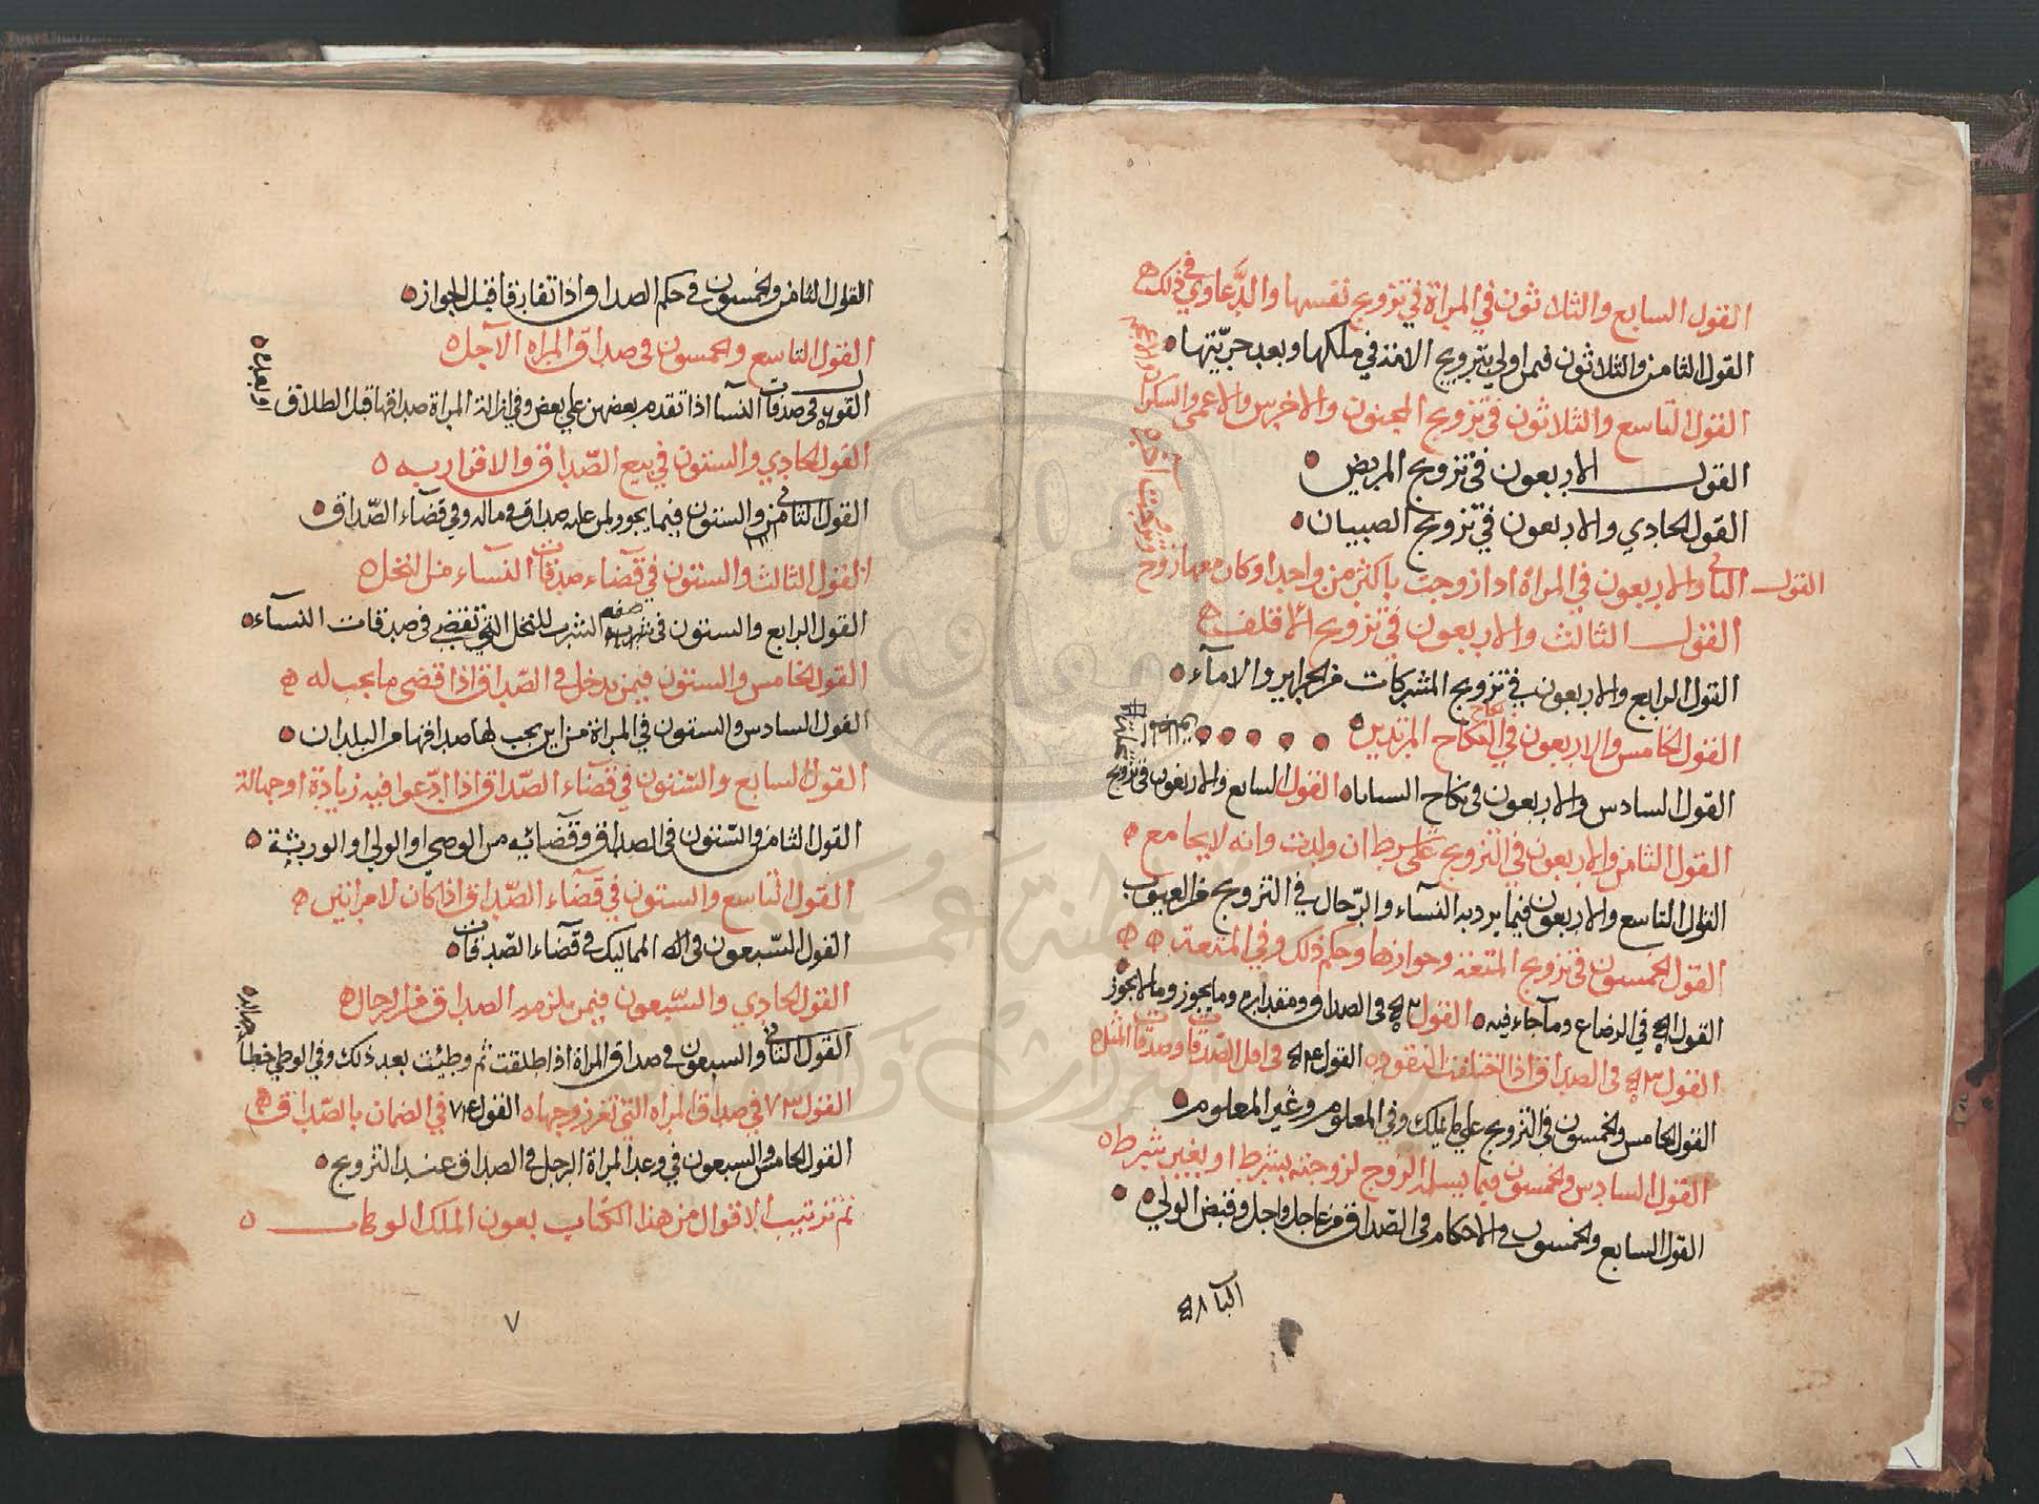 القول السابع والثلاثون في المراة في تزويج نفسها والدعاوي في ذلك
القول الثامن والثلاثون فيمن اولي بتزويج الامة في ملكها وبعد حريتها
القول التاسع والثلاثون في تزويج المجنون والاخرس والاعمى والسكران والاعجم
القول الاربعون في تزويج المريض
القول الحادي والاربعون في تزويج الصبيان
القول الثاني والاربعون في المراة اذا زوجت باكثر من واحد او كان معها زوج وتزوجت آخر
القول الثالث والاربعون في تزويج الاقلف
القول الرابع والاربعون في تزويج المشركات من الحراير والامآء
القول الخامس والاربعون في النكاح نكاح المرتدين
القول السادس والاربعون في نكاح السبايا القول السابع والاربعون في تزويج
القول الثامن والاربعون في التزويج على شرط ان ولدت وانه لا يجامع
القول التاسع والاربعون فيما يرد به النسآء والرجال في التزويج من العيوب
القول الخمسون في تزويج المتعة وجوازها وحكم ذلك وفي المتعة
القول ٥١ في الرضاع وما جاء فيه القول ٥٢ في الصداق ومقداره وما يجوز وما لا يجوز
القول ٥٣ في الصداق اذا اختلفت النقود القول ٥٤ في اقل الصدقات وصدقات المثل
القول الخامس والخمسون في التزويج على ما يملك وفي المعلوم وغير المعلوم
القول السادس والخمسون فيما يسلمه الزوج لزوجته بشرط او بغير شرط
القول السابع والخمسون في الاحكام في الصداق من عاجل واجل وقبض الولي
البآ ٥٨
القول الثامن والخمسون في حكم الصداق اذا تفارقا قبل الجواز
القول التاسع والخمسون في صداق المراه الآجل
القول ٦٠ في صدقات النسآ اذا تقدم بعضهن علي بعض وفي ازالة المراة صداقها قبل الطلاق او بعده
القول الحادي والستون في بيع الصداق والاقرار به
القول الثاني والستون فيما يجوز لمن عليه صداق في ماله وفي قضآء الصداق
القول الثالث والستون في قضآء صدقات النسآء من النخل
القول الرابع والستون في صفة الشرب للنخل التي تقضى في صدقات النسآء
القول الخامس والستون فيمن يدخل في الصداق اذا قضى ما يجب له
القول السادس والستون في المراة من اين يجب لها صداقها من البلدان
القول السابع والستون في قضآء الصداق اذا ادعوا فيه زيادة او جهالة
القول الثامن والستون في الصداق وقضائه من الوصي او الولي او الورثة
القول التاسع والستون في قضآء الصداق اذا كان لامراتين
القول السبعون في المماليك في قضآء الصدقات
القول الحادي والسبعون فيمن يلزمه الصداق من الرجال
القول الثاني والسبعون في صداق المراة اذا طلقت ثم وطئت بعد ذلك وفي الوطي خطأ
القول ٧٣ في صداق المراه التي تغر زوجها القول ٧٤ في الضمان بالصداق
القول الخامس والسبعون في وعد المراة الرجل في الصداق عند التزويج
تم ترتيب الاقوال من هذا الكتاب بعون الملك الوهاب
٧